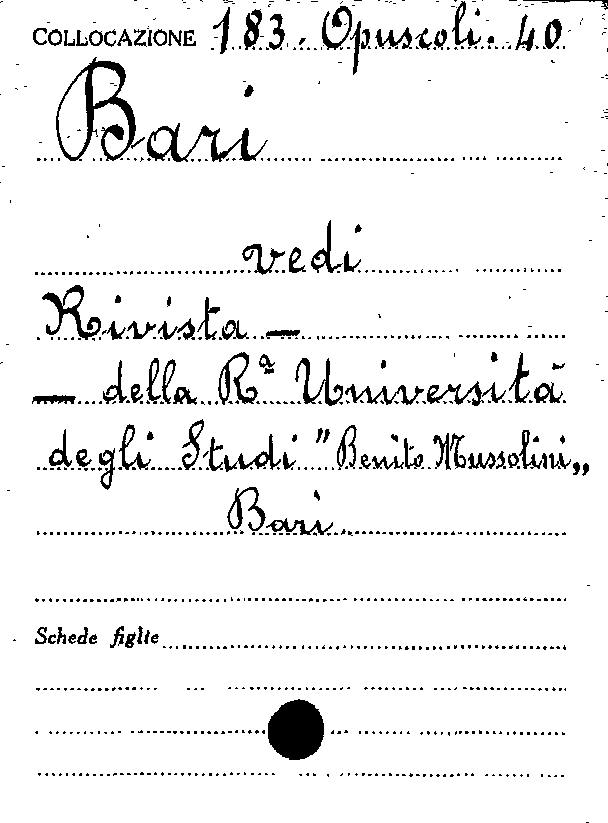 COLLOCAZIONE 183. Opuscoli. 40
Bari
vedi
Rivista —
— della Rª Università
degli Studi "Benito Mussolini„
Bari.
Schede figlie